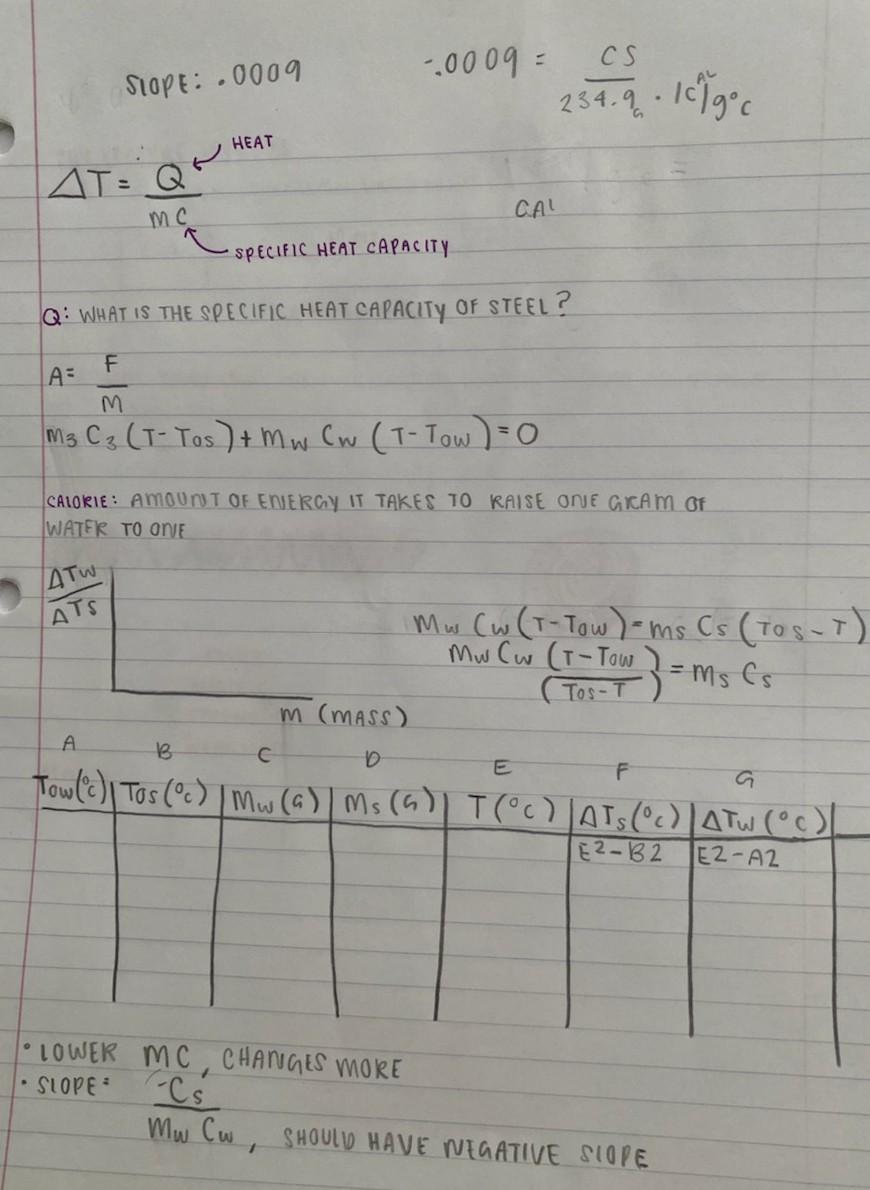 SLOPE: .0009
-.0009 = CS / 234.9g · 1 cal/g°C
HEAT
ΔT = Q / mc
CAL
SPECIFIC HEAT CAPACITY
Q: WHAT IS THE SPECIFIC HEAT CAPACITY OF STEEL?
A = F / M
m3 C3 (T - Tos) + mw Cw (T - Tow) = 0
CALORIE: AMOUNT OF ENERGY IT TAKES TO RAISE ONE GRAM OF
WATER TO ONE
ΔTw / ΔTs
Mw Cw (T - Tow) = ms Cs (Tos - T)
Mw Cw (T - Tow) / (Tos - T) = ms Cs
m (MASS)
A B C D E F G
Tow (°C) | Tos (°C) | Mw (G) | Ms (G) | T (°C) | ΔTs (°C) | ΔTw (°C) |
E2-B2 | E2-A2
• LOWER MC, CHANGES MORE
• SLOPE: -Cs / Mw Cw, SHOULD HAVE NEGATIVE SLOPE